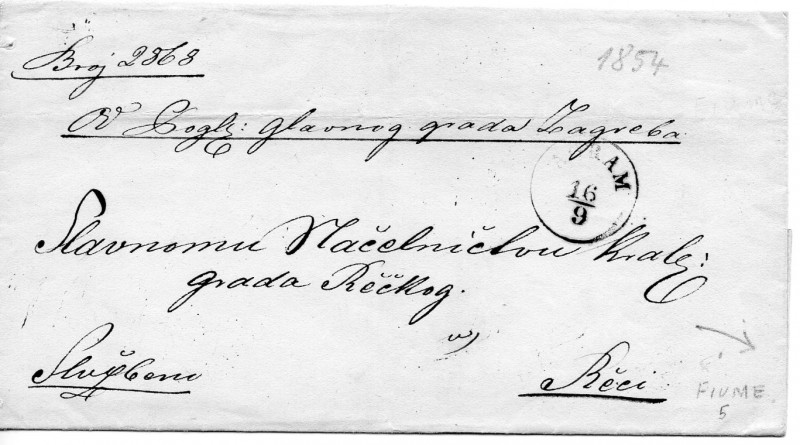 Broj 2868
1854
Od Pogl: glavnog grada Zagreba
AGRAM
16/9
Slavnomu Načelničtvu Kralj:
grada Rěčkog.
u)
Službeno
Rěci
FIUME
5